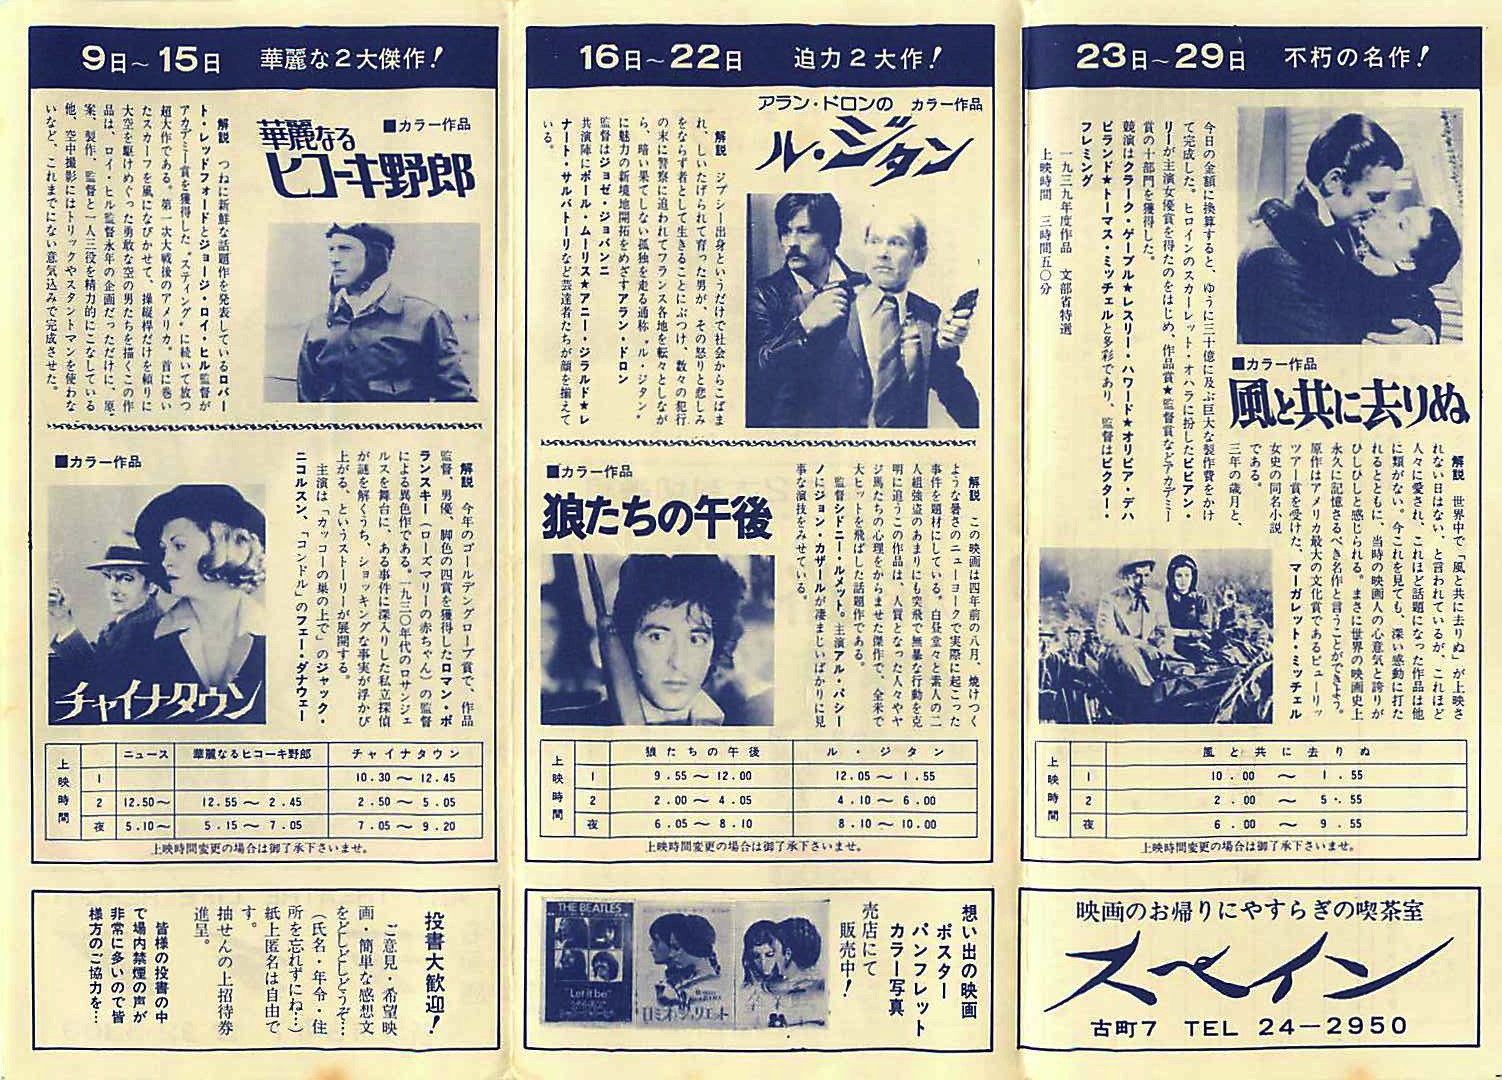 9日～15日 華麗な2大傑作!
■カラー作品
華麗なる
ヒコーキ野郎
解説 つねに新鮮な話題作を発表しているロバー
ト・レッドフォードとジョージ・ロイ・ヒル監督が
アカデミー賞を獲得した〝スティング〟に続いて放つ
超大作である。第一次大戦後のアメリカ。首に巻い
たスカーフを風になびかせて、操縦桿だけを頼りに
大空を駆けめぐった勇敢な空の男たちを描くこの作
品は、ロイ・ヒル監督永年の企画だっただけに、原
案、製作、監督と一人三役を精力的にこなしている
他、空中撮影にはトリックやスタントマンを使わな
いなど、これまでにない意気込みで完成させた。
■カラー作品
チャイナタウン
解説 今年のゴールデングローブ賞で、作品
監督、男優、脚色の四賞を獲得したロマン・ポ
ランスキー(ローズマリーの赤ちゃん)の監督
による異色作である。一九三〇年代のロサンジェ
ルスを舞台に、ある事件に深入りした私立探偵
が謎を解くうち、ショッキングな事実が浮かび
上がる、というストーリーが展開する。
主演は「カッコーの巣の上で」のジャック・
ニコルスン、「コンドル」のフェー・ダナウェー
上映時間
ニュース 華麗なるヒコーキ野郎 チャイナタウン
1 10.30～12.45
2 12.50～ 12.55～2.45 2.50～5.05
夜 5.10～ 5.15～7.05 7.05～9.20
上映時間変更の場合は御了承下さいませ。
投書大歓迎!
ご意見・希望映
画・簡単な感想文
をどしどしどうぞ…
(氏名・年令・住
所を忘れずにね…)
紙上匿名は自由で
す。
抽せんの上招待券
進呈。
皆様の投書の中
で場内禁煙の声が
非常に多いので皆
様方のご協力を…
16日～22日 迫力2大作!
アラン・ドロンの カラー作品
ル・ジタン
解説 ジプシー出身というだけで社会からこばま
れ、しいたげられて育った男が、その怒りと悲しみ
をならず者として生きることにぶつけ、数々の犯行
の末に警察に追われてフランス各地を転々としなが
ら、暗い果てしない孤独を走る通称〝ル・ジタン〟
に魅力の新境地開拓をめざすアラン・ドロン
監督はジョゼ・ジョバンニ
共演陣にポール・ムーリス★アニー・ジラルド★レ
ナート・サルバトーリなど芸達者たちが顔を揃えて
いる。
■カラー作品
狼たちの午後
解説 この映画は四年前の八月、焼けつく
ような暑さのニューヨークで実際に起こった
事件を題材にしている。白昼堂々と素人の二
人組強盗のあまりにも突飛で無暴な行動を克
明に追うこの作品は、人質となった人々やヤ
ジ馬たちの心理をからませた傑作で、全米で
大ヒットを飛ばした話題作である。
監督シドニー・ルメット。主演アル・パシー
ノにジョン・カザールが凄まじいばかりに見
事な演技をみせている。
上映時間
狼たちの午後 ル・ジタン
1 9.55～12.00 12.05～1.55
2 2.00～4.05 4.10～6.00
夜 6.05～8.10 8.10～10.00
上映時間変更の場合は御了承下さいませ。
THE BEATLES
"Let it be"
ロミオとジュリエット
想い出の映画
ポスター
パンフレット
カラー写真
売店にて
販売中!
23日～29日 不朽の名作!
■カラー作品
風と共に去りぬ
解説 世界中で「風と共に去りぬ」が上映さ
れない日はない、と言われているが、これほど
人々に愛され、これほど話題になった作品は他
に類がない。今これを見ても、深い感動に打た
れるとともに、当時の映画人の心意気と誇りが
ひしひしと感じられる。まさに世界の映画史上
永久に記憶さるべき名作と言うことができよう。
原作はアメリカ最大の文化賞であるピューリッ
ツアー賞を受けた、マーガレット・ミッチェル
女史の同名小説
である。
三年の歳月と、
今日の金額に換算すると、ゆうに三十億に及ぶ巨大な製作費をかけ
て完成した。ヒロインのスカーレット・オハラに扮したビビアン・
リーが主演女優賞を得たのをはじめ、作品賞★監督賞などアカデミー
賞の十部門を獲得した。
競演はクラーク・ゲーブル★レスリー・ハワード★オリビア・デハ
ビランド★トーマス・ミッチェルと多彩であり、監督はビクター・
フレミング
一九三九年度作品 文部省特選
上映時間 三時間五〇分
上映時間
風と共に去りぬ
1 10.00 ～ 1.55
2 2.00 ～ 5.55
夜 6.00 ～ 9.55
上映時間変更の場合は御了承下さいませ。
映画のお帰りにやすらぎの喫茶室
スペイン
古町7 TEL 24－2950